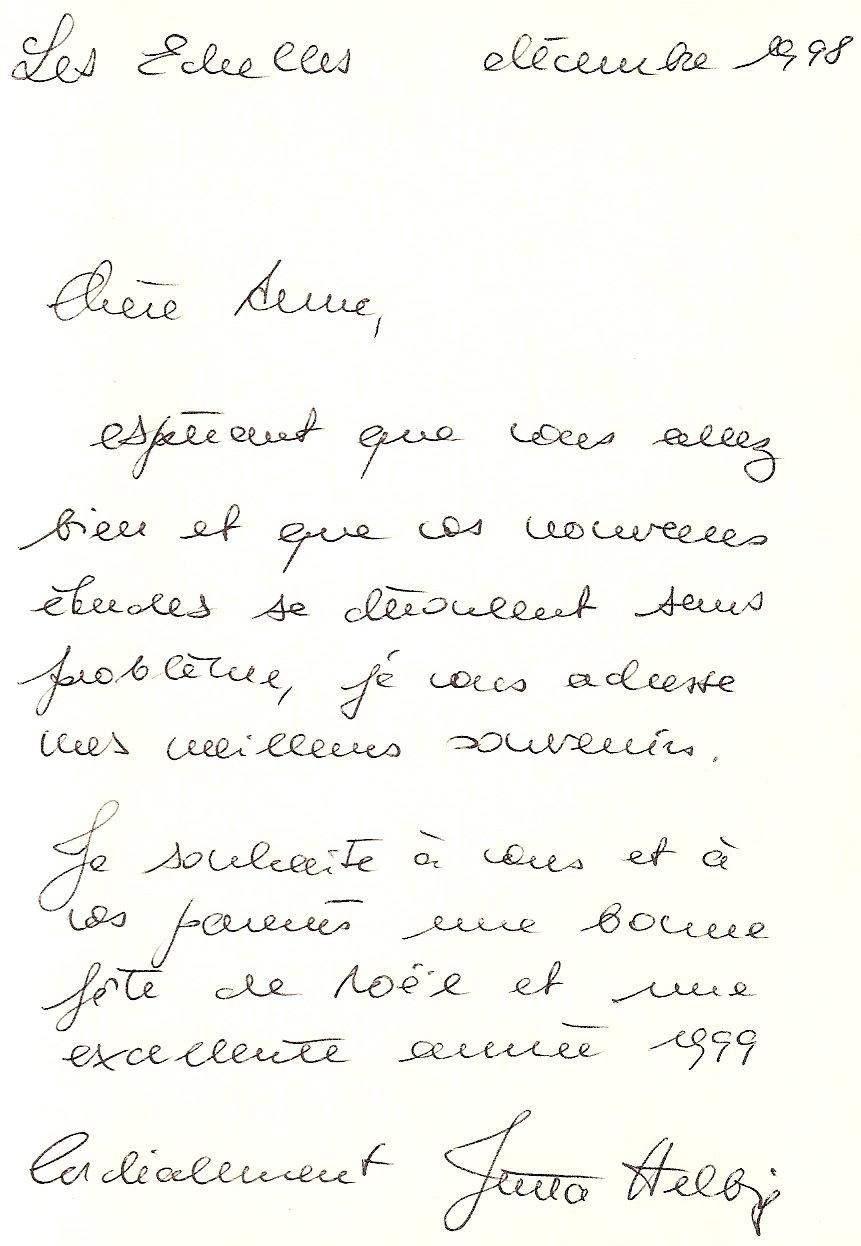 Les Echelles décembre 1998
Chère Anne,
espérant que vous allez
bien et que vos nouvelles
études se déroulent sans
problème, je vous adresse
mes meilleurs souvenirs.
Je souhaite à vous et à
vos parents une bonne
fête de Noël et une
excellente année 1999
Cordialement Jutta Helbig